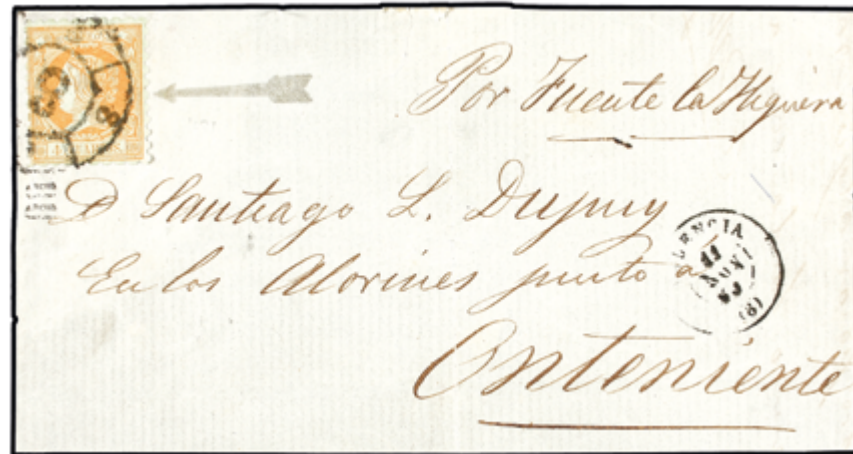 Por Fuente la Higuera
D Santiago L. Dupuy
En los Alorines junto a
Onteniente
8
(8)